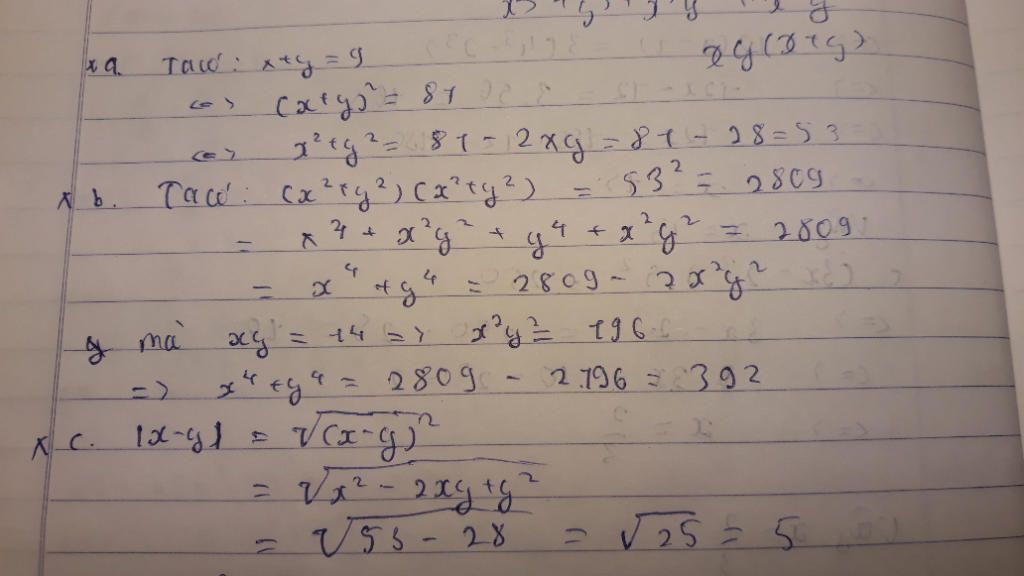 xy(x+y)
a. Ta có: x+y = 9
<=> (x+y)² = 81
<=> x²+y² = 81 - 2xy = 81 - 28 = 53
b. Ta có: (x²+y²)(x²+y²) = 53² = 2809
= x⁴ + x²y² + y⁴ + x²y² = 2809
= x⁴ + y⁴ = 2809 - 2x²y²
mà xy = 14 => x²y² = 196
=> x⁴ + y⁴ = 2809 - 2.196 = 392
c. |x-y| = √(x-y)²
= √x² - 2xy + y²
= √53 - 28 = √25 = 5